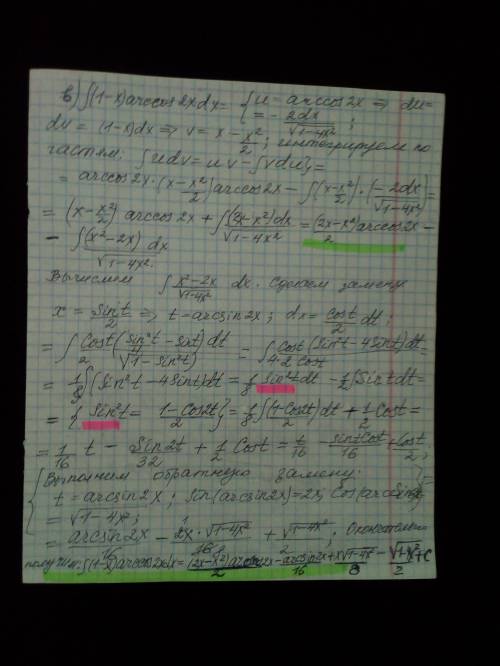 в) ∫(1-x)arccos2xdx= {u=arccos2x ⇒ du=
= -2dx/√(1-4x²);
dv = (1-x)dx ⇒ v = x - x²/2; интегрируем по
частям: ∫udv = uv - ∫vdu}=
= arccos2x·(x-x²/2)arccos2x - ∫(x-x²/2)·(-2dx/√(1-4x²))=
= (x-x²/2) arccos2x + ∫(2x-x²)dx/√(1-4x²) = (2x-x²)arccos2x/2 -
- ∫(x²-2x)dx/√(1-4x²).
Вычислим ∫(x²-2x)/√(1-4x²) dx. Сделаем замену
x = sint/2 ⇒ t=arcsin2x; dx = cost/2 dt,
= ∫ Cost/2 (sin²t/4 - sint)dt/√(1-sin²t) = ∫ Cost(sin²t-4sint)dt/4·2 cost =
= 1/8 ∫(sin²t-4sint)dt = 1/8 ∫sin²tdt - 1/2 ∫Sintdt=
= {sin²t = (1-Cos2t)/2} = 1/8 ∫(1-Cos2t)/2 dt + 1/2 Cost =
= 1/16 t - Sin2t/32 + 1/2 Cost = t/16 - sintCost/16 + Cost/2;
{Выполним обратную замену:
t = arcsin2x; sin(arcsin2x)=2x; Cos(arcsin2x)=
= √(1-4x²);
= arcsin2x/16 - 2x·√(1-4x²)/16 + √(1-4x²)/2; Окончательно
получим: ∫(1-x)arccos2xdx = (2x-x²)arccos2x/2 - arcsin2x/16 + x√(1-4x²)/8 - √(1-4x²)/2 + C